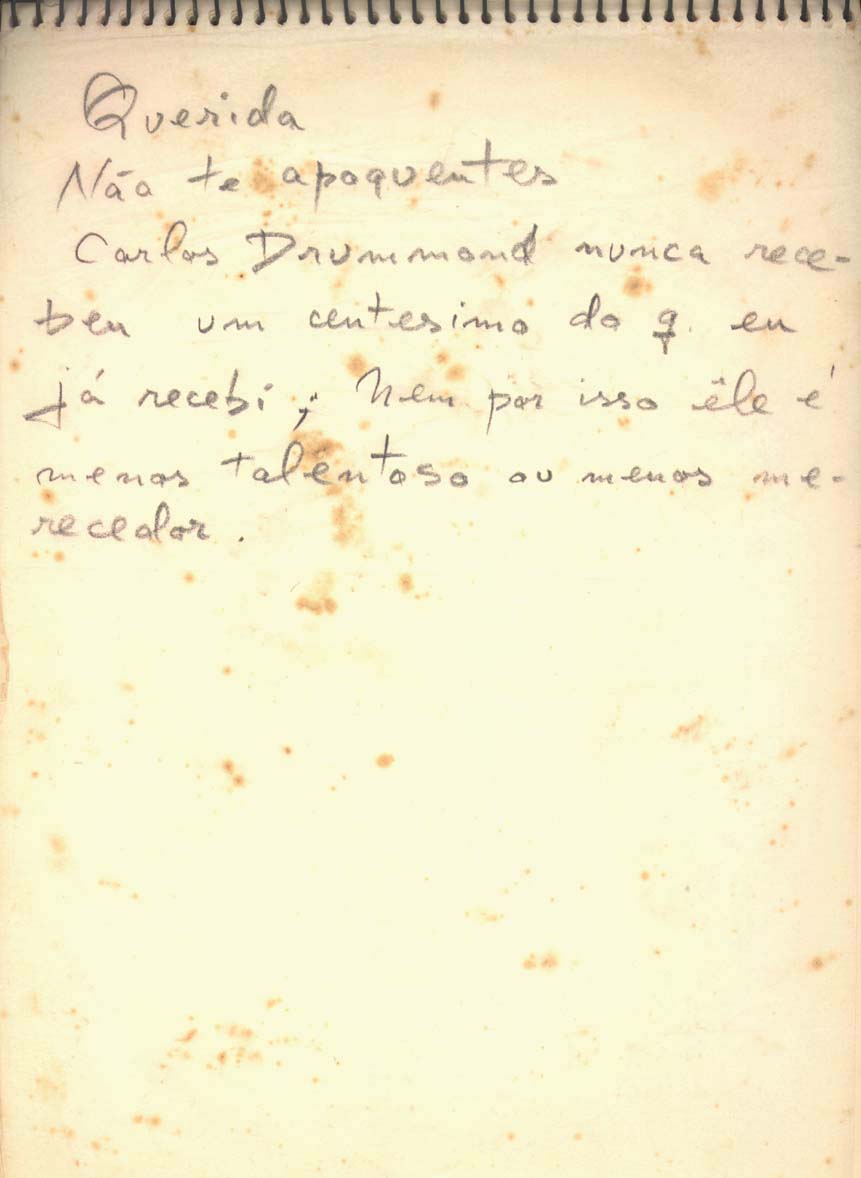 Querida
Não te apoquentes
Carlos Drummond nunca rece-
beu um centesimo do q. eu
já recebi; Nem por isso êle é
menos talentoso ou menos me-
recedor.